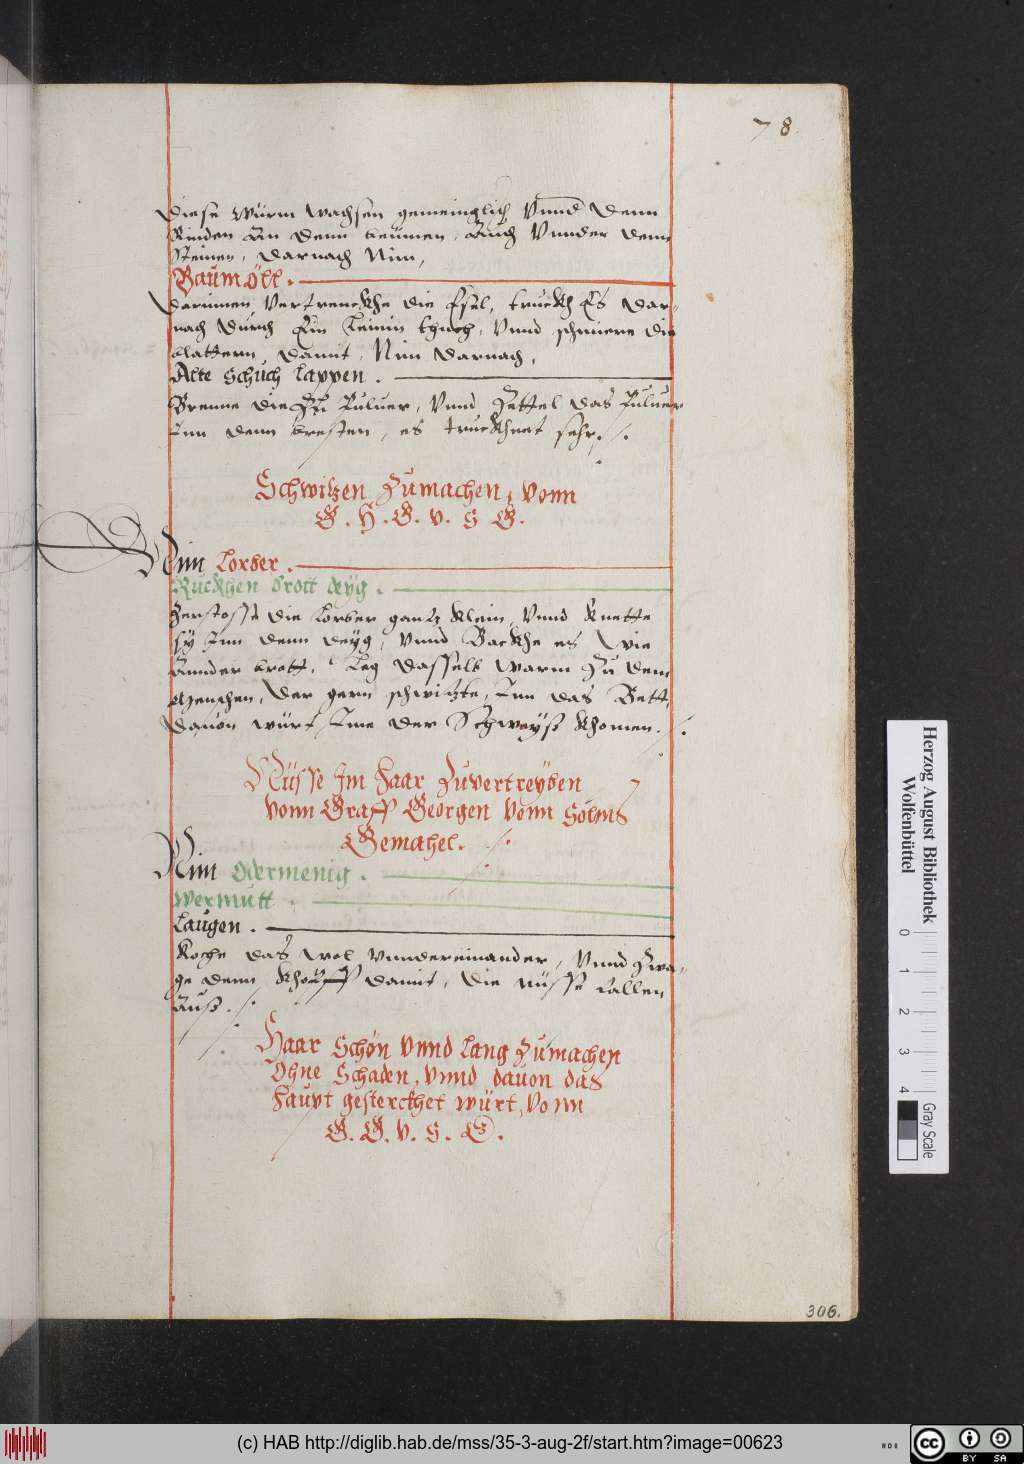 78.
Diese Würm wachsen gemeinglich Vnnd Denn
Rinden An denn beümen, Auch Vnnder denn
Steinen, darnach Nim,
Baumöll.
Darinnen Vertrenckhe die Esel, truckh Es dar-
nach durch Ein Leinin tuoch, Vnnd schmiere die
blattern damit, Nim darnach,
Alte Schuch lappen.
Brenne die Zu Puluer, Vnnd Zettel das Puluer
Inn denn bresten, es truckhnet sehr.
Schwitzen Zumachen, vonn
G. H. G. v. S G.
Nim Lorber.
Ruckhen brott deyg.
Zerstosse die Lorber gantz klein, Vnnd knette
sy Inn denn deyg, Vnnd Backhe es Wie
Annder brott, Leg dasselb warm Zu dem
Menschen, der gern schwitzte, Inn das Bett,
Dauon würt Ime der Schweyß khomen.
Nüsse Im Haar Zuvertreyben
vonn Graff Georgen vonn Solms
Gemahel.
Nim Odermenig.
Wermutt
Laugen.
Koche das wol Vnndereinander, Vnnd Zwa-
ge denn Khopff damit, die nüsse fallen
Auß.
Haar Schön vnnd lang Zumachen
Ohne Schaden, vnnd dauon das
Haupt gesterckhet würt, vonn
G. G. v. S. G.
306.
Herzog August Bibliothek
Wolfenbüttel
0 1 2 3 4
Gray Scale
(c) HAB http://diglib.hab.de/mss/35-3-aug-2f/start.htm?image=00623
cc BY SA